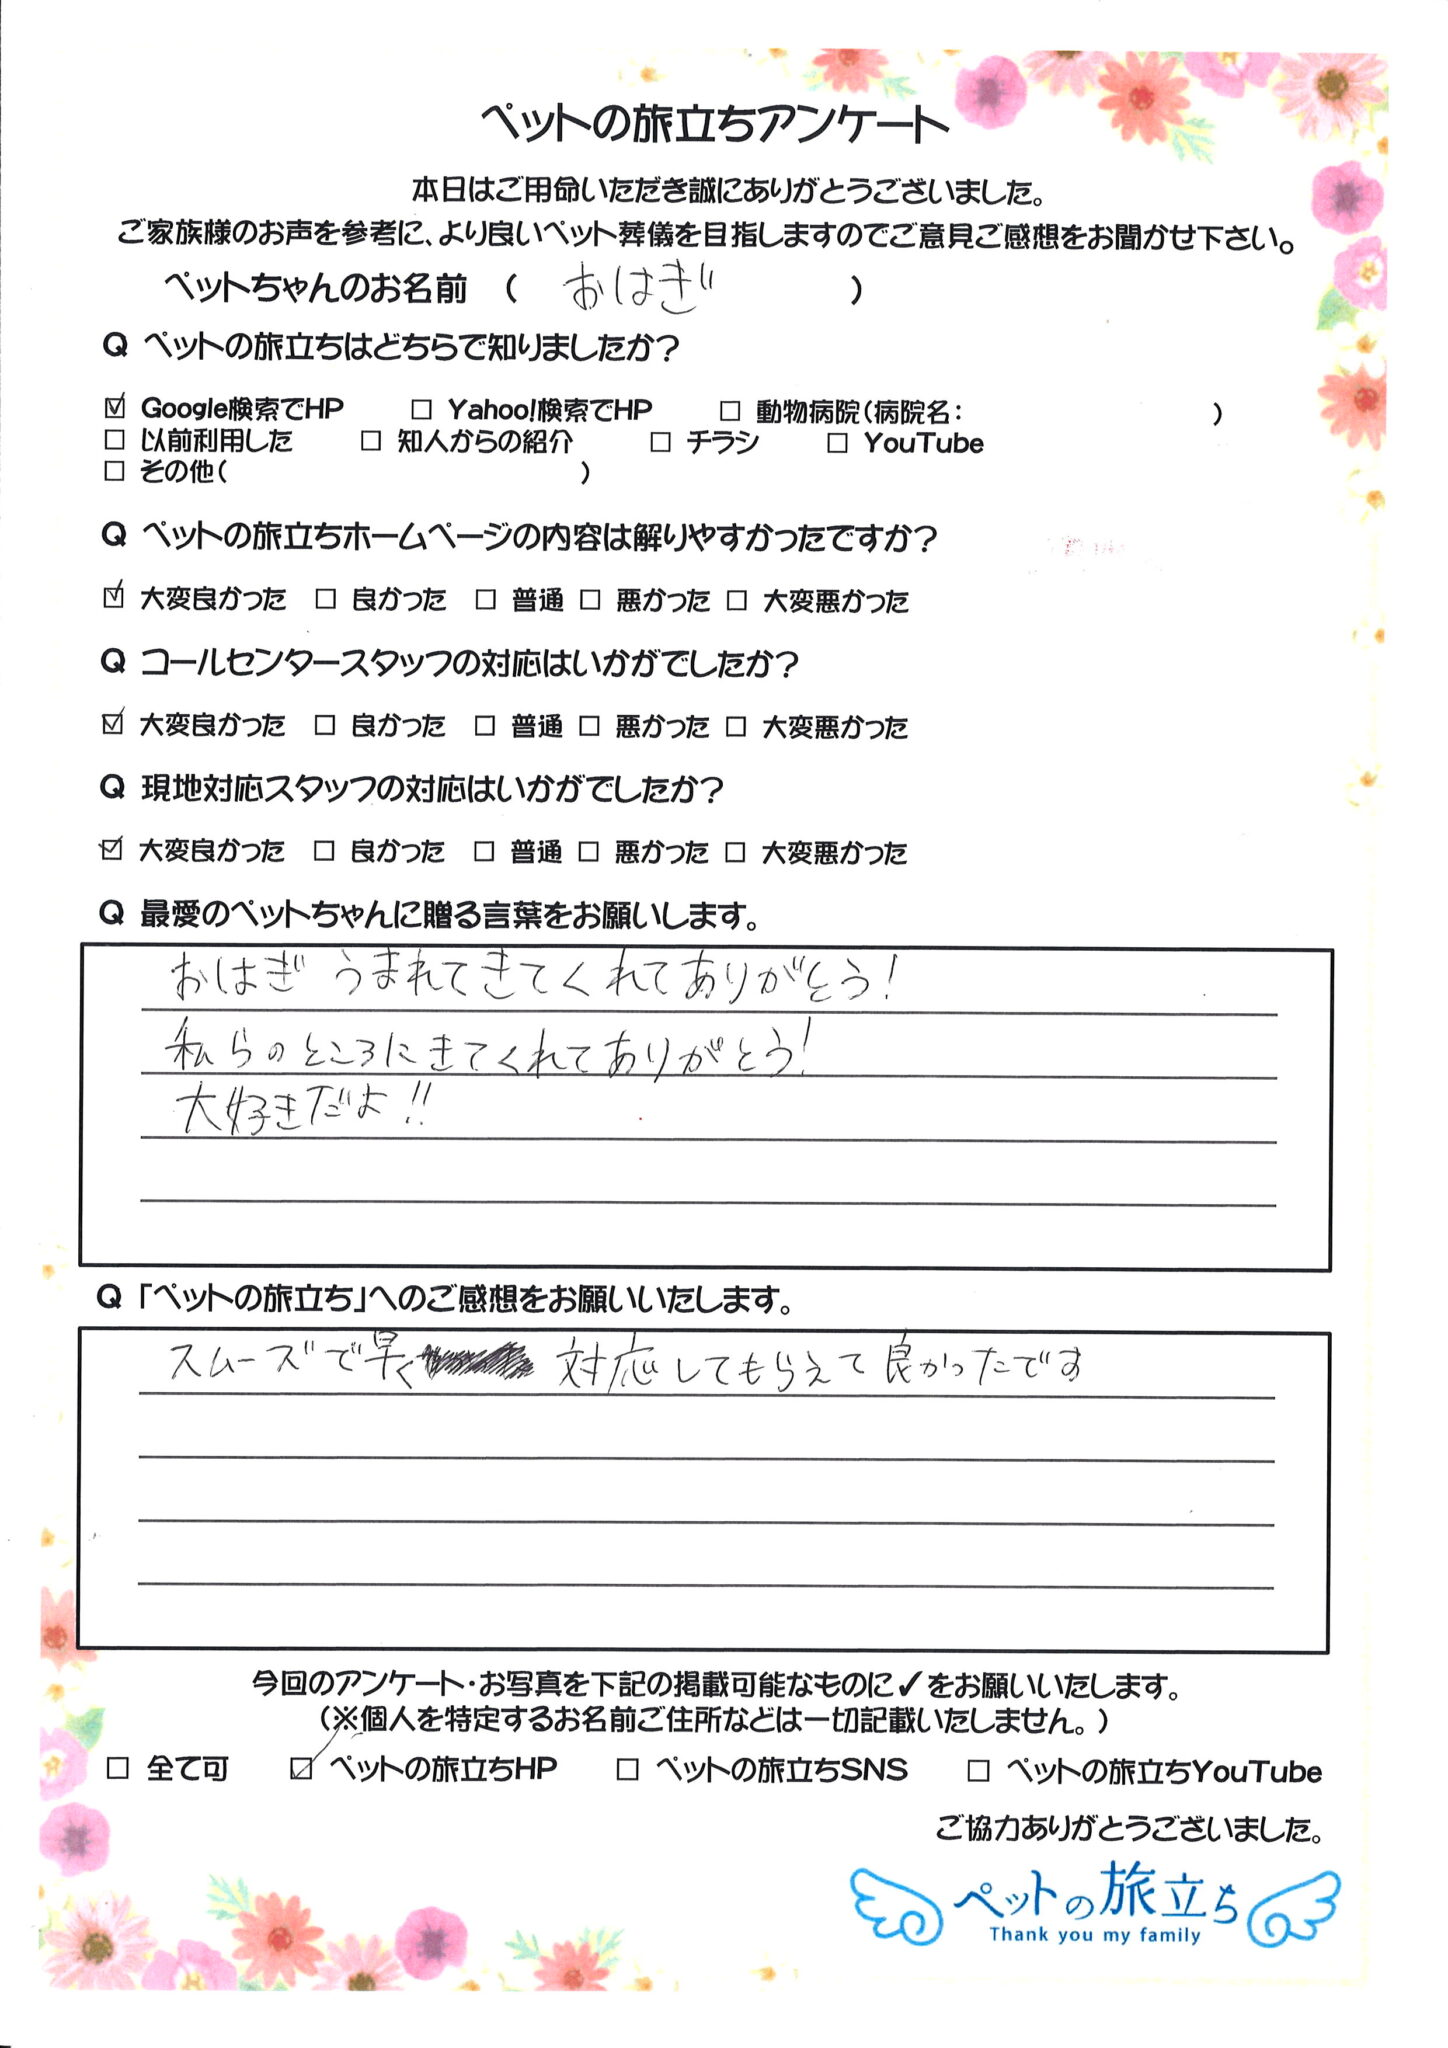 ペットの旅立ちアンケート
本日はご用命いただき誠にありがとうございました。
ご家族様のお声を参考に、より良いペット葬儀を目指しますのでご意見ご感想をお聞かせ下さい。
ペットちゃんのお名前 ( おはぎ )
Q ペットの旅立ちはどちらで知りましたか?
☑ Google検索でHP □ Yahoo!検索でHP □ 動物病院(病院名: )
□ 以前利用した □ 知人からの紹介 □ チラシ □ YouTube
□ その他( )
Q ペットの旅立ちホームページの内容は解りやすかったですか?
☑ 大変良かった □ 良かった □ 普通 □ 悪かった □ 大変悪かった
Q コールセンタースタッフの対応はいかがでしたか?
☑ 大変良かった □ 良かった □ 普通 □ 悪かった □ 大変悪かった
Q 現地対応スタッフの対応はいかがでしたか?
☑ 大変良かった □ 良かった □ 普通 □ 悪かった □ 大変悪かった
Q 最愛のペットちゃんに贈る言葉をお願いします。
おはぎ うまれてきてくれてありがとう!
私らのところにきてくれてありがとう!
大好きだよ!!
Q 「ペットの旅立ち」へのご感想をお願いいたします。
スムーズで早く 対応してもらえて良かったです
今回のアンケート・お写真を下記の掲載可能なものに✓をお願いいたします。
(※個人を特定するお名前ご住所などは一切記載いたしません。)
□ 全て可 ☑ ペットの旅立ちHP □ ペットの旅立ちSNS □ ペットの旅立ちYouTube
ご協力ありがとうございました。
ペットの旅立ち
Thank you my family